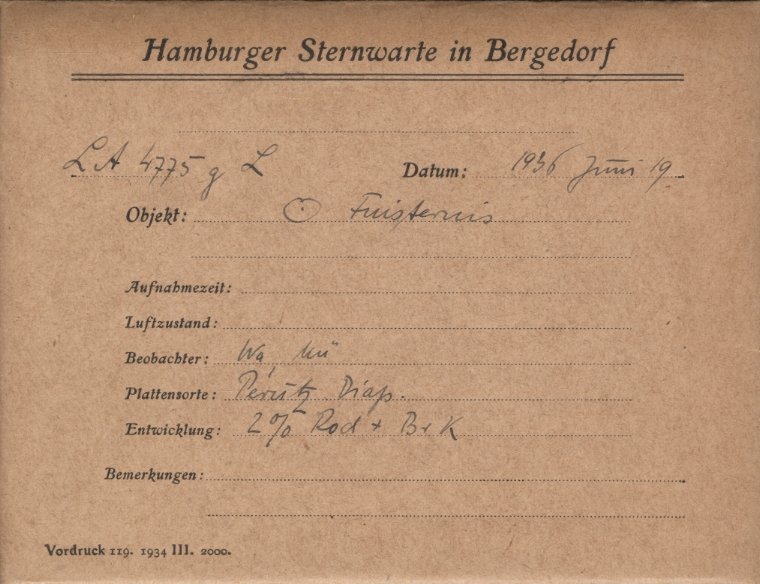 Hamburger Sternwarte in Bergedorf
LA 4775 g L Datum: 1936 Juni 19.
Objekt: ☉ Finsternis
Aufnahmezeit:
Luftzustand:
Beobachter: Wa, Mü
Plattensorte: Perutz Diap.
Entwicklung: 2% Rod + Br K
Bemerkungen:
Vordruck 119. 1934 III. 2000.